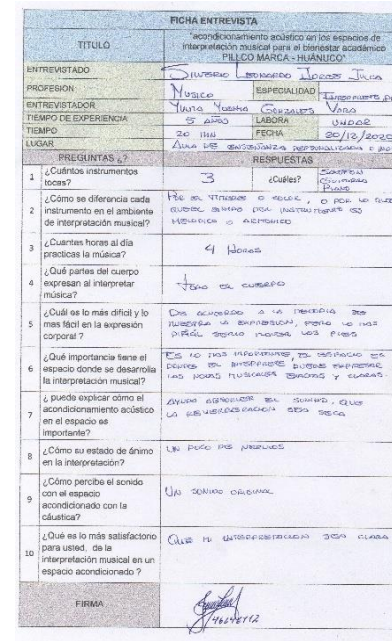 FICHA ENTREVISTA
TITULO
"acondicionamiento acústico en los espacios de
interpretación musical para el bienestar académico
PILLCO MARCA - HUÁNUCO"
ENTREVISTADO
SILVERIO LEONARDO JORGES JULCA
PROFESION
MUSICO
ESPECIALIDAD
ENTREVISTADOR
YUVITA GONZALES VARA
TIEMPO DE EXPERIENCIA
5 AÑOS
LABORA
TIEMPO
20 MIN
FECHA
20/12/2020
LUGAR
AULA DE ENSEÑANZA PERSONALIZADA
PREGUNTAS ¿?
RESPUESTAS
1 ¿Cuántos instrumentos
tocas?
3
¿Cuáles?
SAXOFON
GUITARRA
PIANO
2 ¿Cómo se diferencia cada
instrumento en el ambiente
de interpretación musical?
POR EL TIMBRE O COLOR, O POR LO QUE
INSTRUMENTO ES
MELODICO O ARMONICO
3 ¿Cuantas horas al día
practicas la música?
4 HORAS
4 ¿Qué partes del cuerpo
expresan al interpretar
música?
TODO EL CUERPO
5 ¿Cuál es lo más difícil y lo
mas fácil en la expresión
corporal ?
DE ACUERDO A LA MELODIA SE
MUESTRA LA EXPRESION, PERO LO MAS
DIFICIL SERIA MOVER LOS PIES
6 ¿Qué importancia tiene el
espacio donde se desarrolla
la interpretación musical?
ES LO MAS IMPORTANTE, EL ESPACIO ES
DONDE EL INTERPRETE PUEDE EXPRESAR
LAS NOTAS MUSICALES EXACTAS Y CLARAS.
7 ¿ puede explicar cómo el
acondicionamiento acústico
en el espacio es
importante?
AYUDA ABSORVER EL SONIDO, QUE
LA REVERBERACION SEA SECA
8 ¿Cómo su estado de ánimo
en la interpretación?
UN POCO DE NERVIOS
9 ¿Cómo percibe el sonido
con el espacio
acondicionado con la
cáustica?
UN SONIDO ORIGINAL
10 ¿Qué es lo más satisfactorio
para usted, de la
interpretación musical en un
espacio acondicionado ?
QUE MI INTERPRETACION SEA CLARA
FIRMA